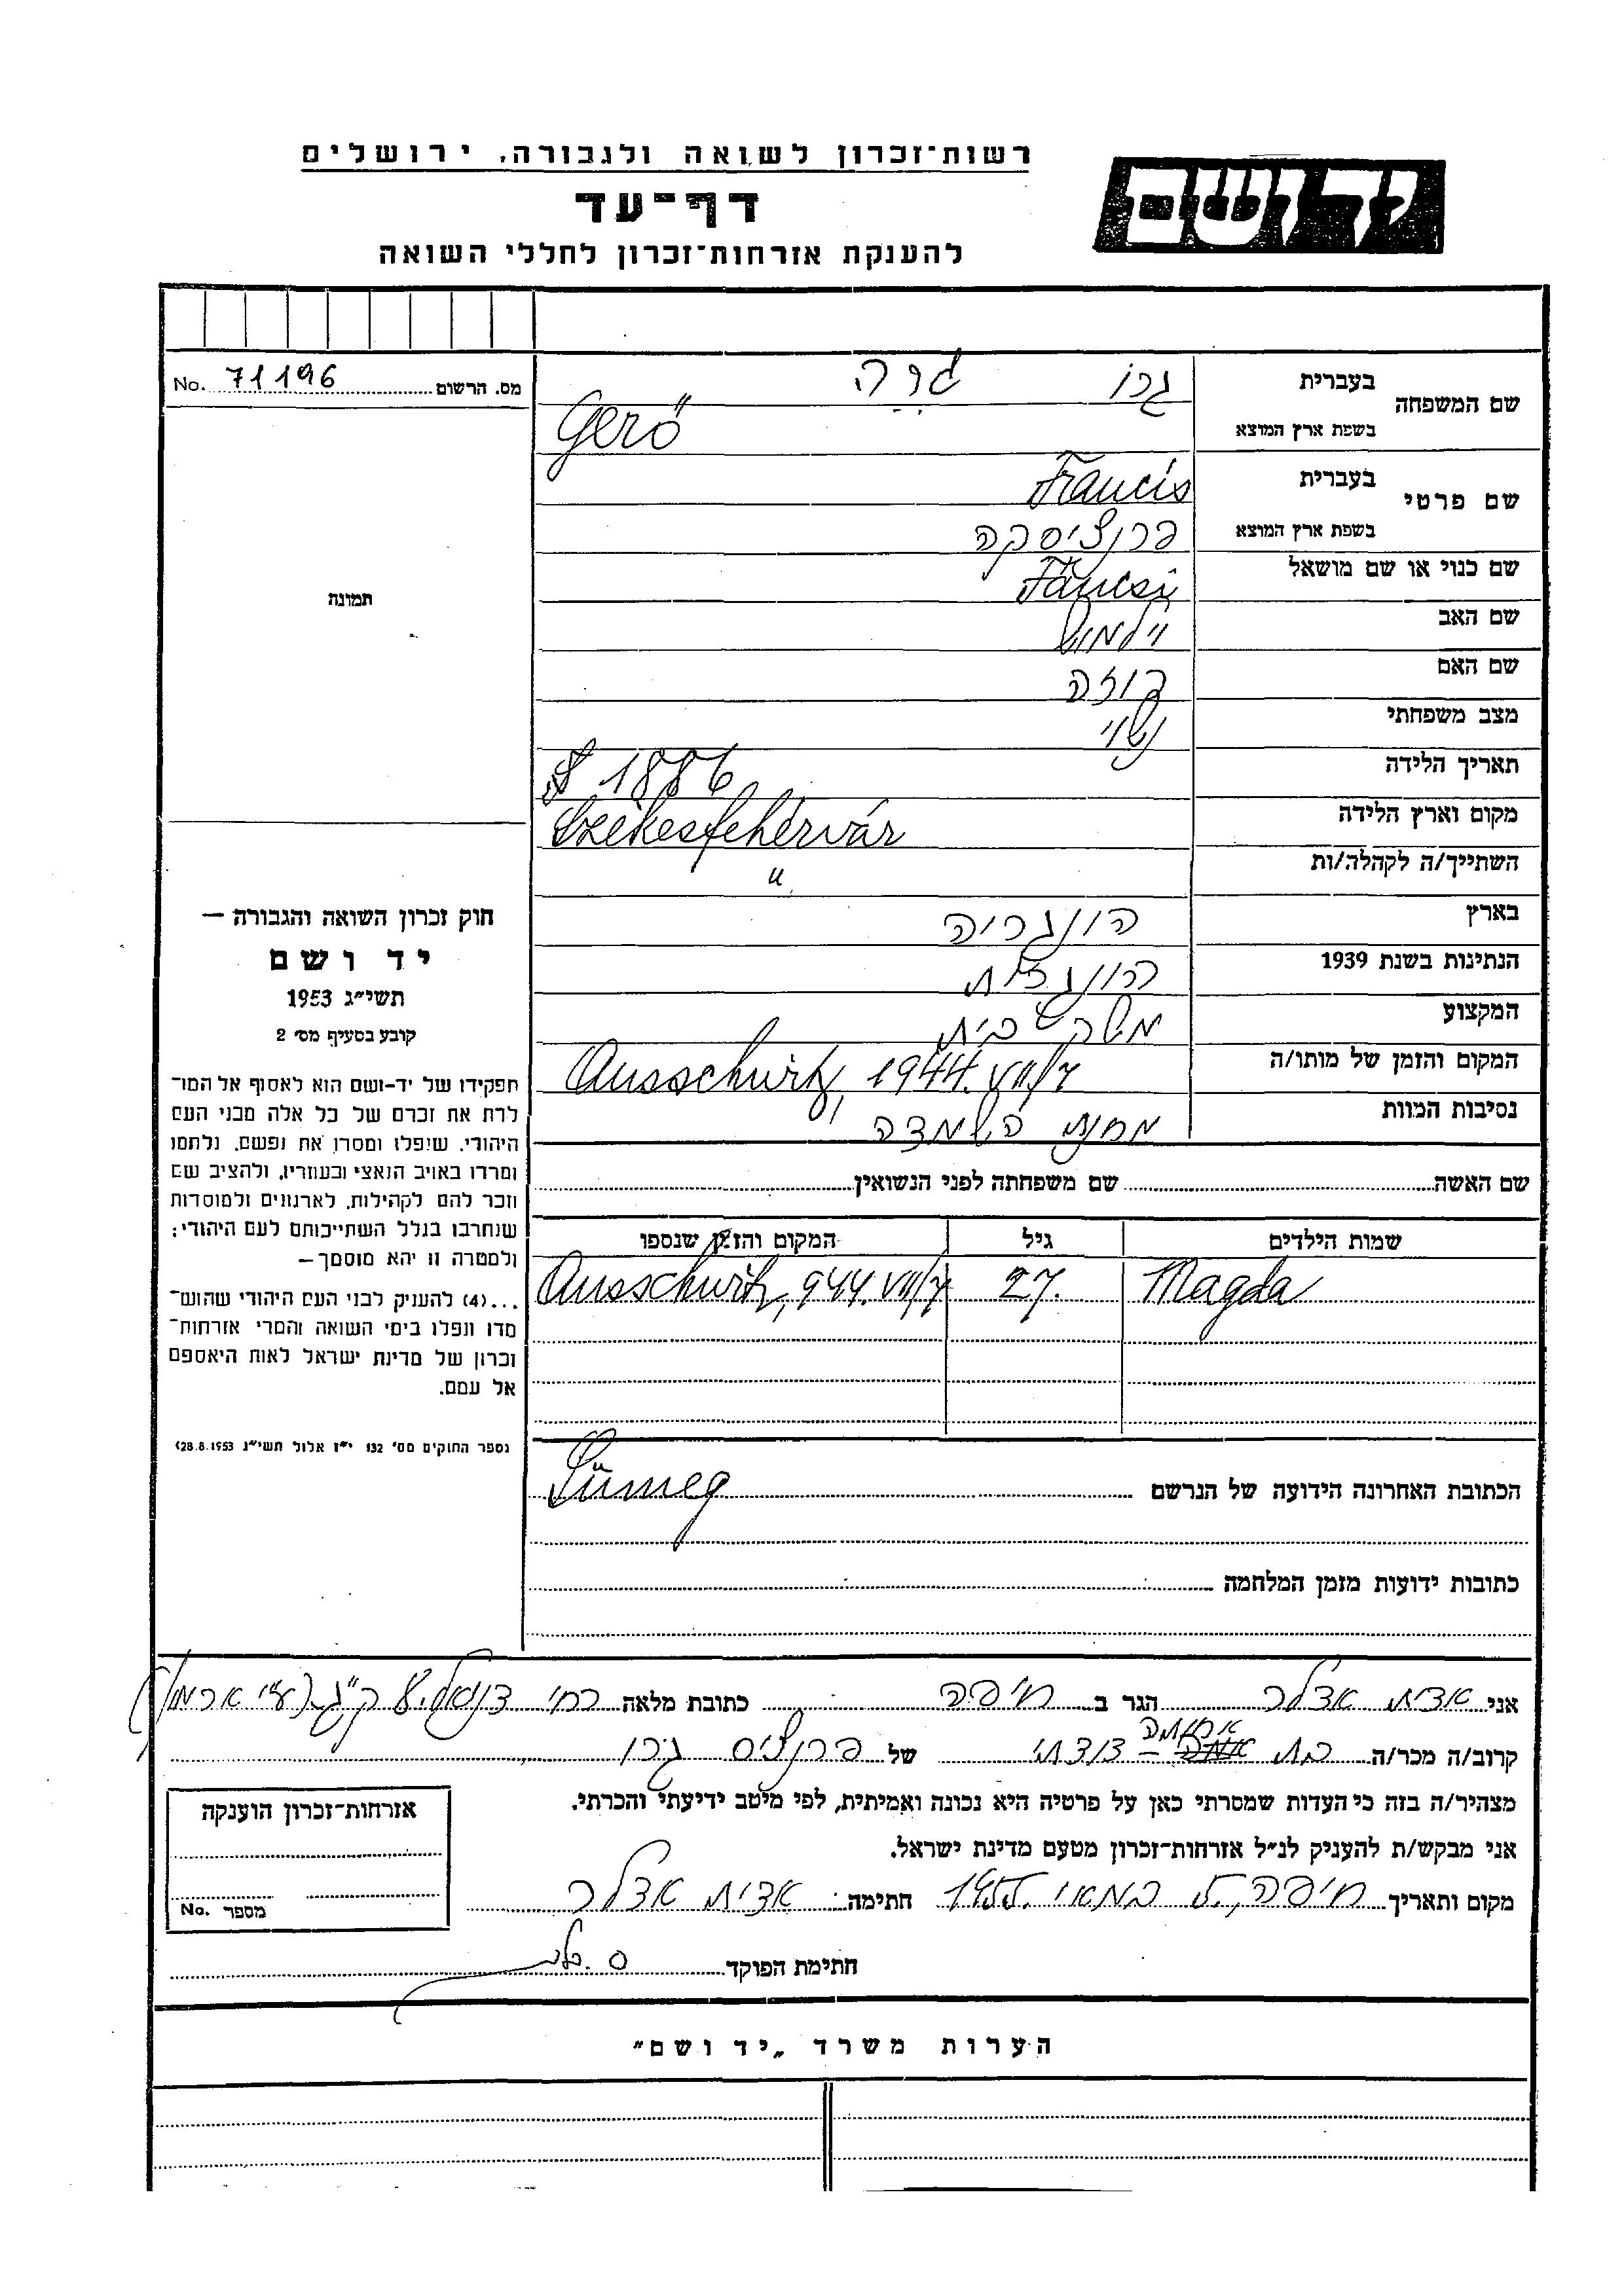 יד ושם
רשות-זכרון לשואה ולגבורה, ירושלים
דף-עד
להענקת אזרחות-זכרון לחללי השואה
מס. הרשום 71196 No.
שם המשפחה בעברית גרו גרה
בשפת ארץ המוצא Gerő
שם פרטי בעברית Francis
בשפת ארץ המוצא פרנציסקה
שם כנוי או שם מושאל Fáncsi
שם האב וילמוש
שם האם רוזה
מצב משפחתי נשוי
תאריך הלידה 1886
מקום וארץ הלידה Székesfehérvár
השתייך/ה לקהלה/ות "
בארץ הונגריה
הנתינות בשנת 1939 הונגרית
המקצוע משק בית
המקום והזמן של מותו/ה Ausschwitz, 1944. VII/7
נסיבות המוות מחנה השמדה
תמונה
חוק זכרון השואה והגבורה —
יד ושם
תשי"ג 1953
קובע בסעיף מס' 2
תפקידו של יד-ושם הוא לאסוף אל המו-
לדת את זכרם של כל אלה מבני העם
היהודי, שנפלו ומסרו את נפשם, נלחמו
ומרדו באויב הנאצי ובעוזריו, ולהציב שם
וזכר להם לקהילות, לארגונים ולמוסדות
שנחרבו בגלל השתייכותם לעם היהודי;
ולמטרה זו יהא מוסמך —
...(4) להעניק לבני העם היהודי שהוש-
מדו ונפלו בימי השואה והמרי אזרחות-
זכרון של מדינת ישראל לאות היאספם
אל עמם.
(ספר החוקים מס' 132 י"ז אלול תשי"ג 28.8.1953)
שם האשה שם משפחתה לפני הנשואין
שמות הילדים גיל המקום והזמן שנספו
Magda 27. Ausschwitz, 944. VII/7
הכתובת האחרונה הידועה של הנרשם Sümeg
כתובות ידועות מזמן המלחמה
אני אדית אדלר הגר ב חיפה כתובת מלאה
קרוב/ה מכר/ה בת דודתי של פרנציס גרו
מצהיר/ה בזה כי העדות שמסרתי כאן על פרטיה היא נכונה ואמיתית, לפי מיטב ידיעתי והכרתי.
אני מבקש/ת להעניק לנ"ל אזרחות-זכרון מטעם מדינת ישראל.
מקום ותאריך חיפה, במאי חתימה: אדית אדלר
אזרחות-זכרון הוענקה
מספר No.
חתימת הפוקד
הערות משרד „יד ושם"